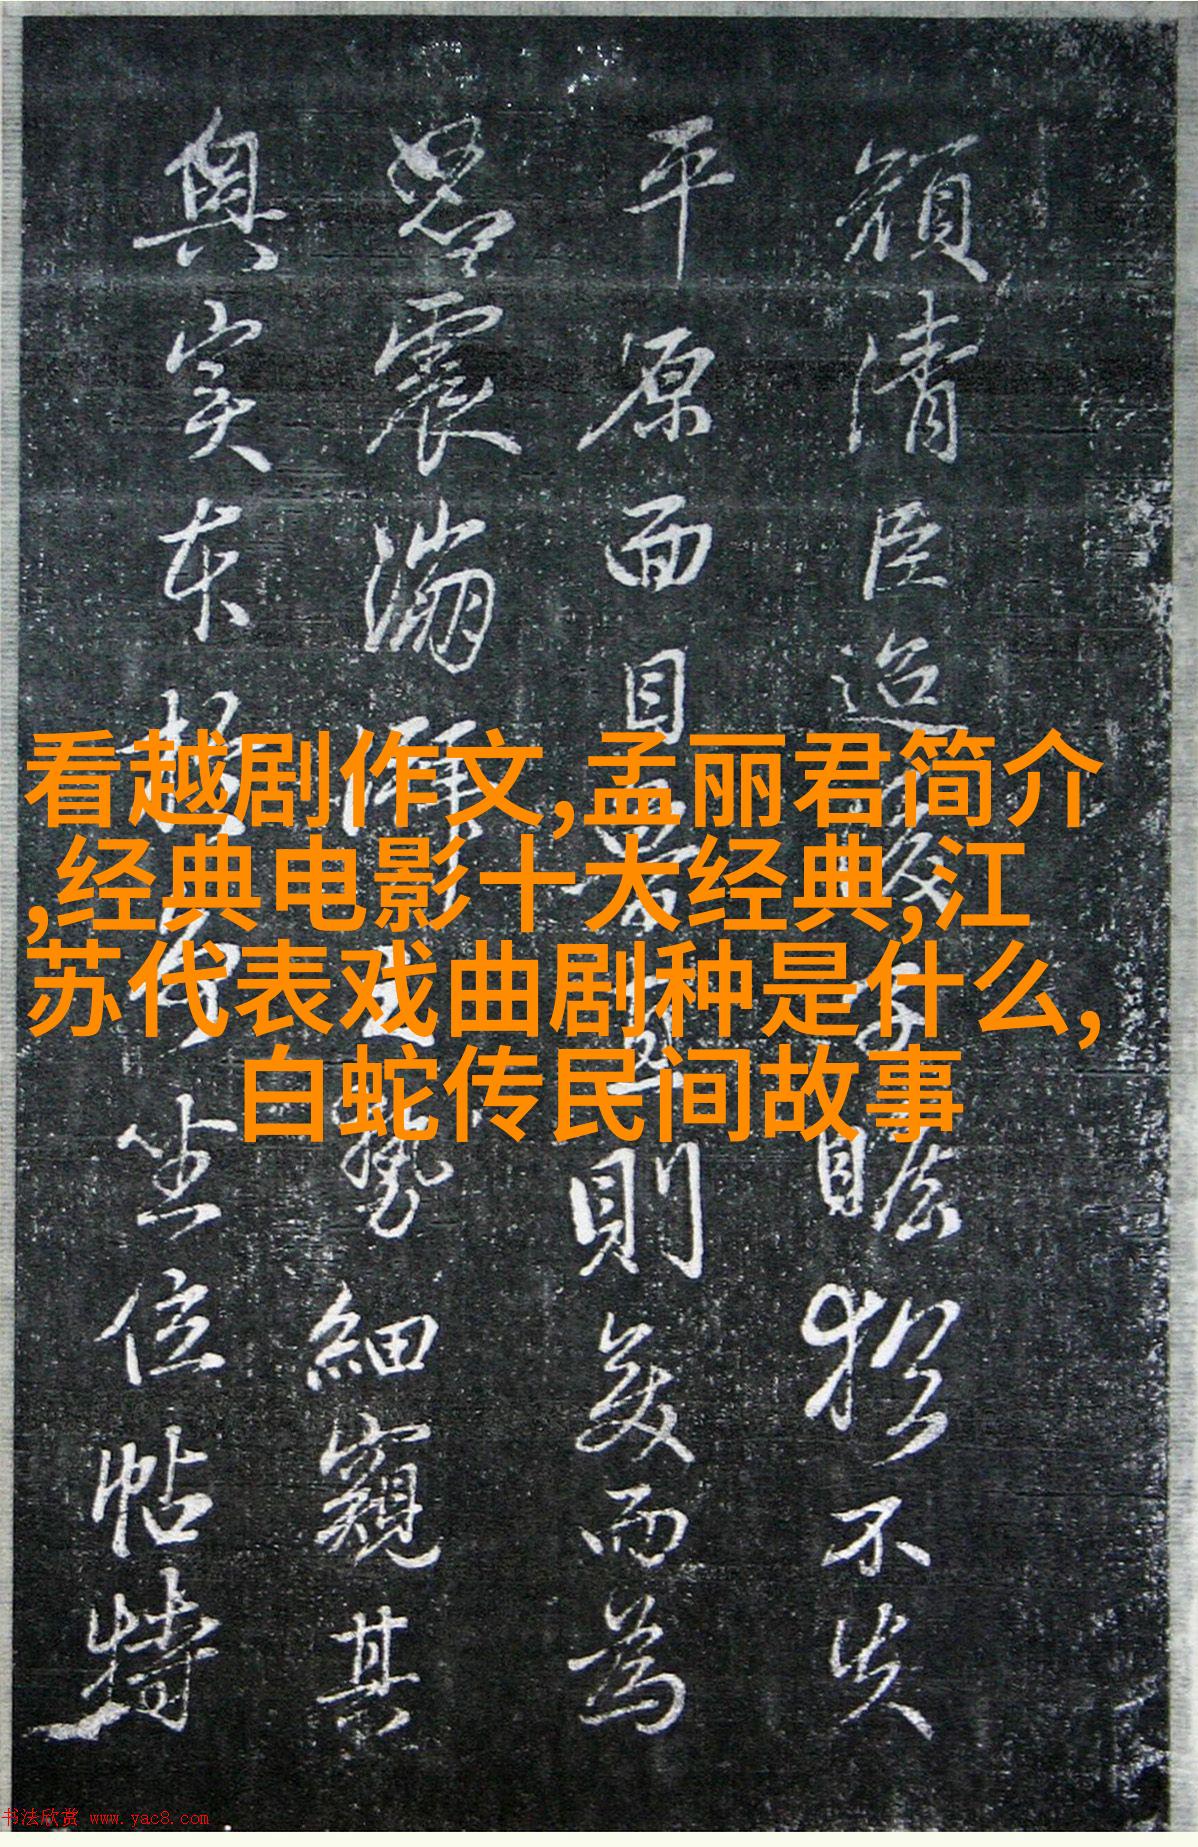 看越剧作文,孟丽君简介
,经典电影十大经典,江
苏代表戏曲剧种是什么,
白蛇传民间故事
清臣迢子瞻猶不失
平原面目則矣而為
震勢細窺其
坐位帖特
书法欣赏 www.yac8.com